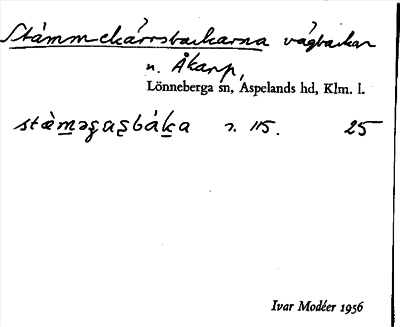 Stämmekärrsbackarna vägbackar
n. Åkarp,
Lönneberga sn, Aspelands hd, Klm. l.
stæ̀mǝʂaʂbáka n. 115. 25
Ivar Modéer 1956